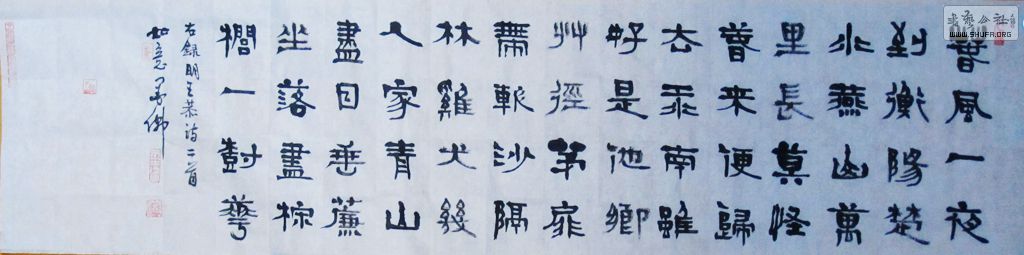 春風一夜
到衡陽楚
水燕山萬
里長莫怪
春来便歸
去江南雖
好是他鄉
艸徑茅扉
帶軟沙隔
林雞犬幾
人家青山
盡日垂簾
坐落盡棕
櫚一樹華
右錄明王恭詩二首
如意
書法公社
WWW.SHUFA.ORG